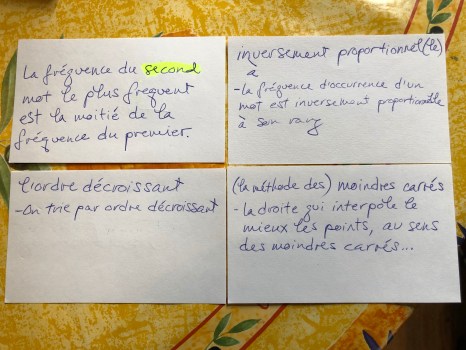 La fréquence du second
mot le plus frequent
est la moitié de la
fréquence du premier.
inversement proportionnel(le)
à
- la fréquence d'occurrence d'un
mot est inversement proportionnelle
à son rang
l'ordre décroissant
- On trie par ordre décroissant
(la méthode des) moindres carrés
- la droite qui interpole le
mieux les points, au sens
des moindres carrés...